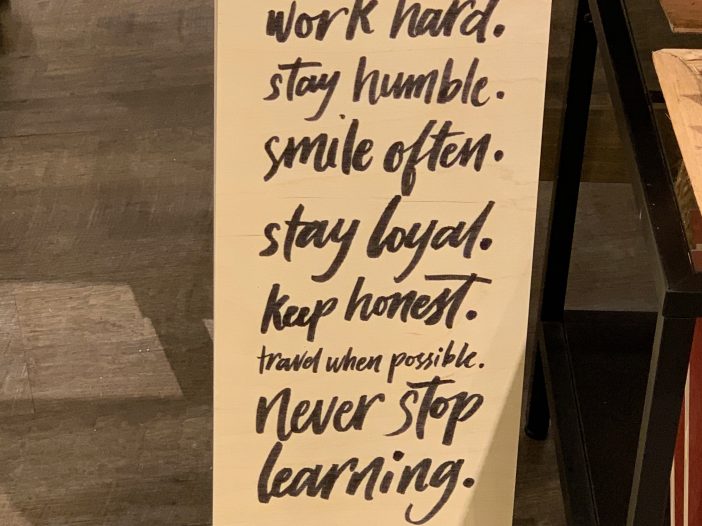 work hard.
stay humble.
smile often.
stay loyal.
keep honest.
travel when possible.
never stop
learning.